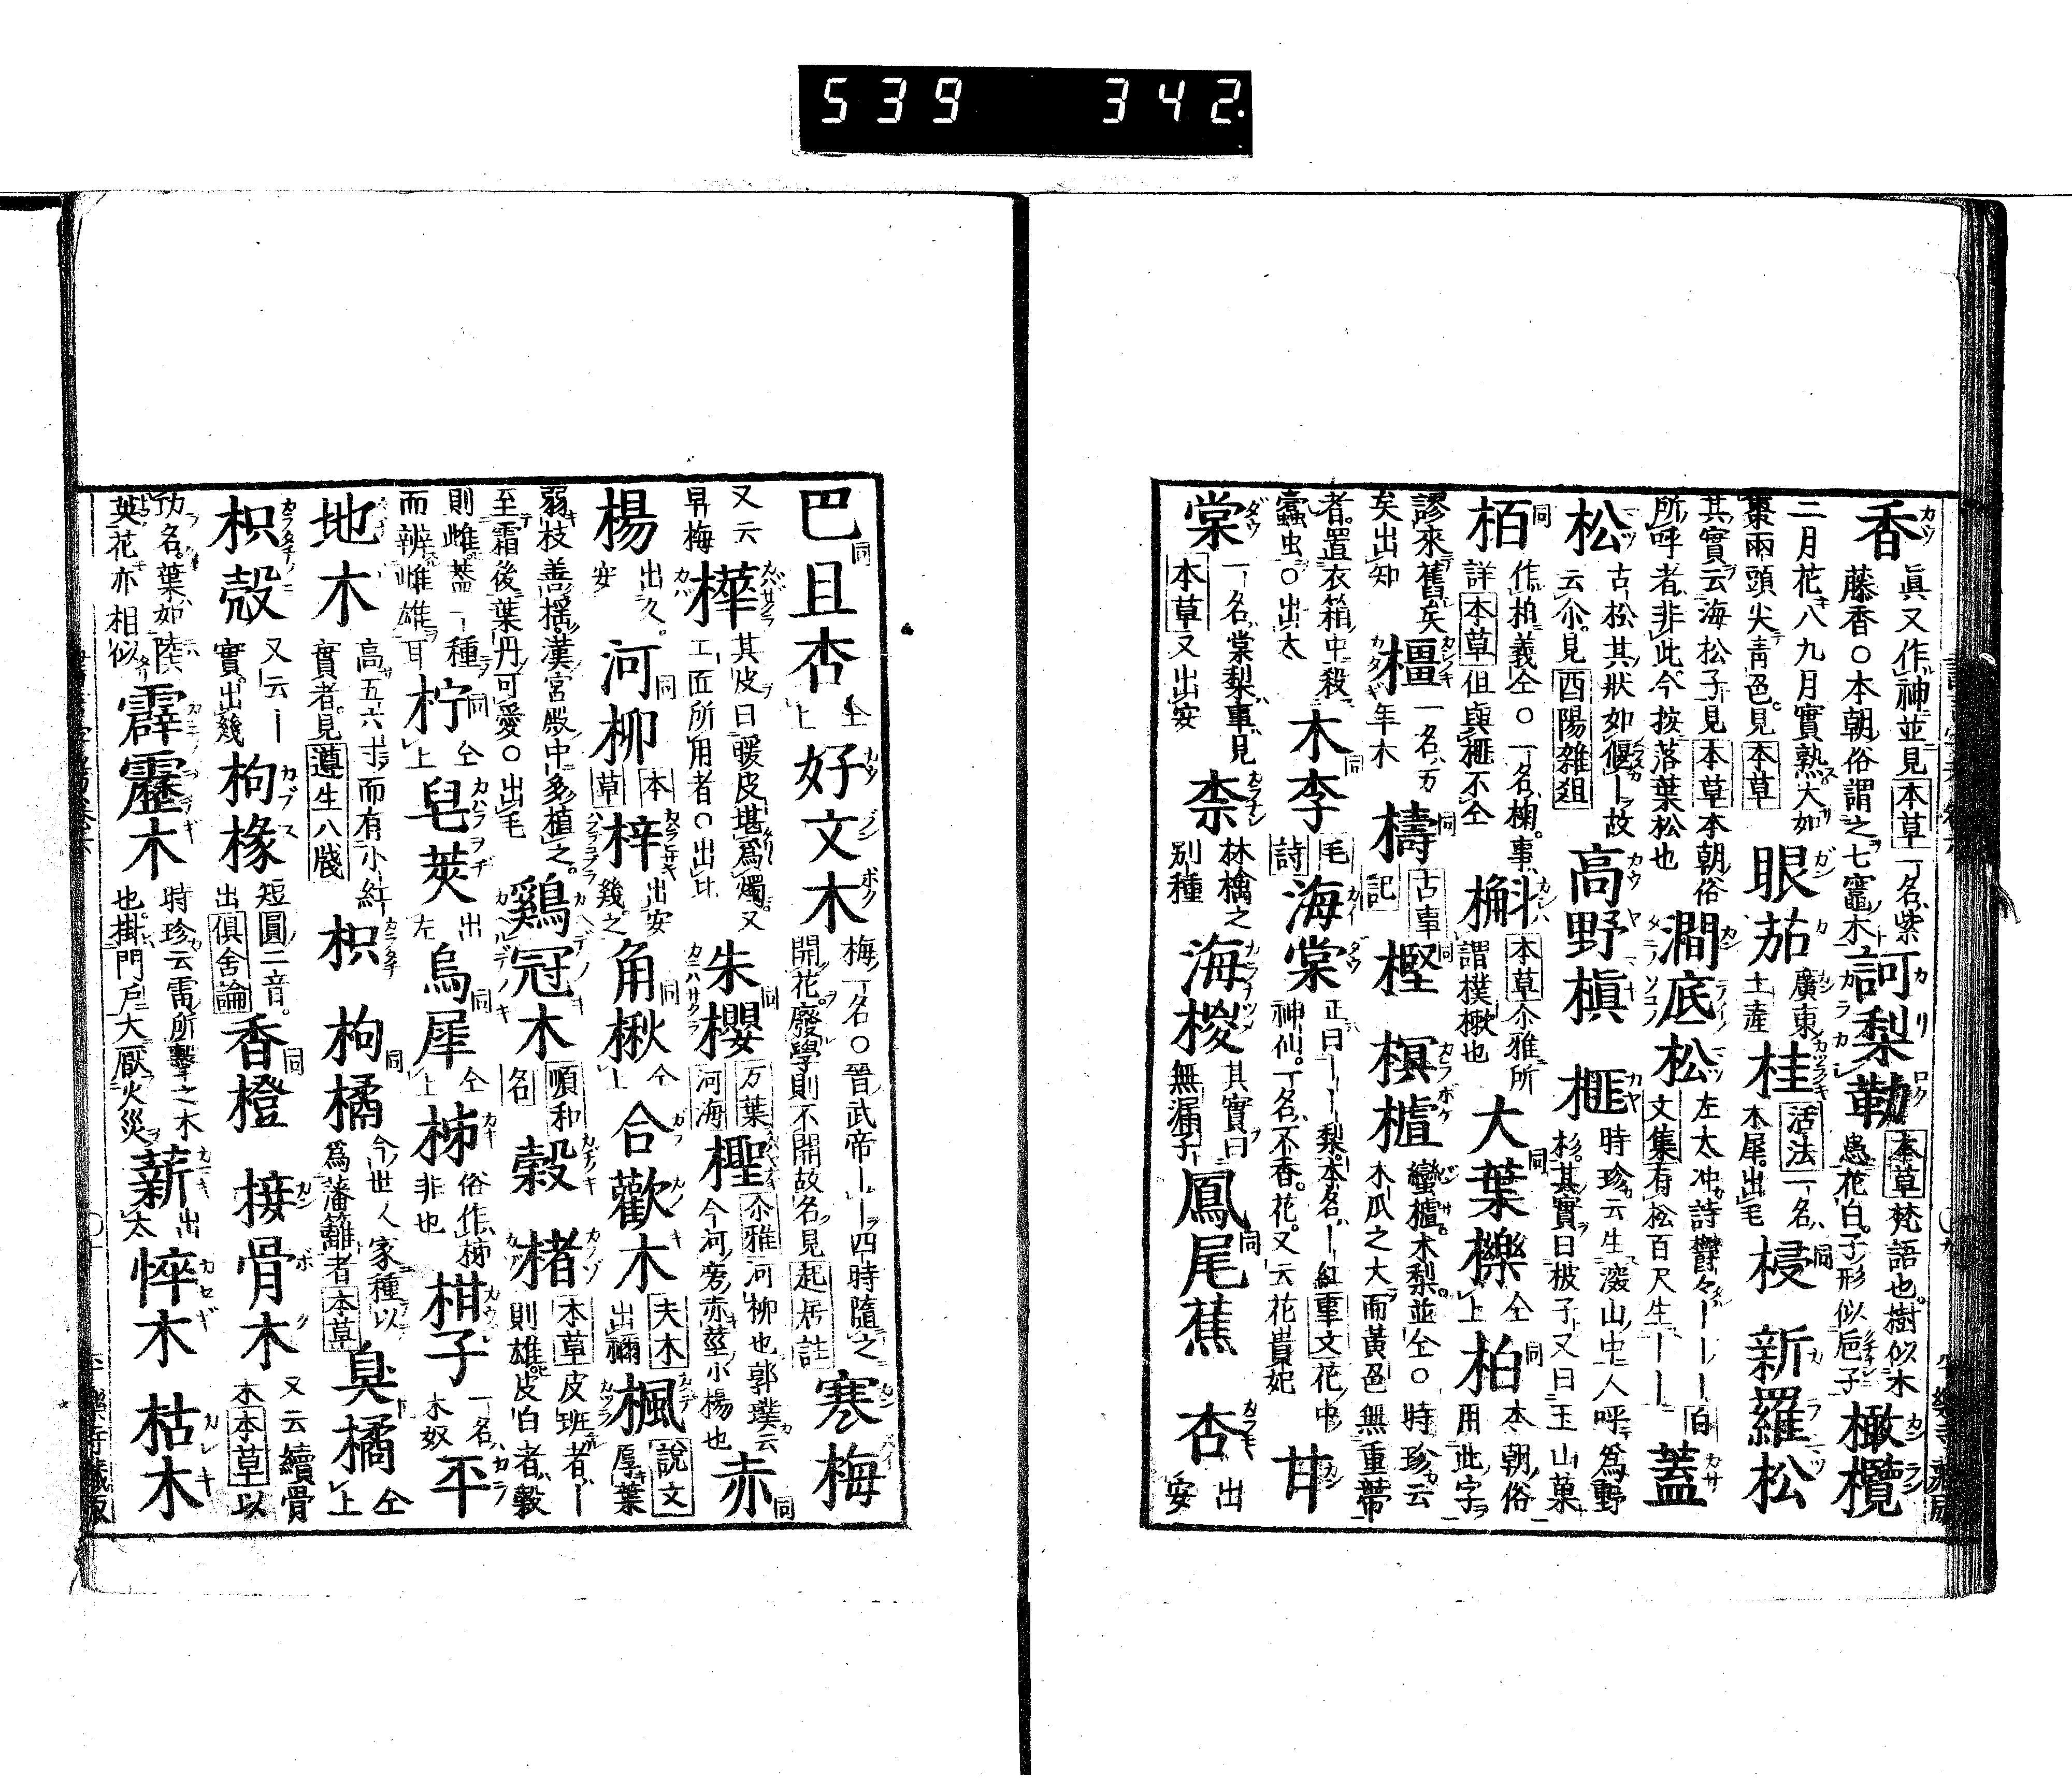 539 342
香 眞又作神並見本草一名紫藤香○本朝俗謂之七竈木 訶梨勒 本草梵語也樹似木患花白子形似巵子 橄欖
二月花八九月實熟大如棗兩頭尖青色見本草 眼茄 廣東土産 桂 活法一名木犀出毛 梫 新羅松
其實云海松子見本草本朝俗所呼者非此今按落葉松也 澗底松 左太冲詩鬱々ーーー白文集有松百尺生ーー 蓋
松 古松其狀如偃ー故云尒見酉陽雜俎 高野槇 榧 時珍云生深山中人呼爲野杉其實曰披子又曰玉山菓
栢 作柏義仝○一名椈事詳本草但與榧不仝 本草尒雅所謂樸樕也 大葉櫟 仝上 柏 本朝俗用此字
謬來舊矣矣出知 橿 一名万年木 檮 古事記 樫 榠樝 蠻樝木梨並仝○時珍云木瓜之大而黃色無重蔕
者置衣箱中殺蠹虫○出太 木李 毛詩 海棠 正曰ーー梨本名ー紅事文花中神仙一名不香花又云花貴妃 甘
棠 一名棠梨事見本草又出安 柰 林檎之別種 海椶 其實曰無漏子 鳳尾蕉 杏 出安
巴且杏 仝上 好文木 梅一名○晉武帝ーー四時隨之開花廢學則不開故名見起居註 寒梅
又云早梅 樺 其皮曰暖皮堪爲燭又工匠所用者○出比 朱櫻 万葉河海 檉 尒雅河柳也郭璞云今河旁赤莖小楊也 赤
楊 出久安 河柳 本草 梓 出安幾之 角楸 仝上 合歡木 夫木出禰 楓 說文厚葉
弱枝善揺漢宮殿中多植之至霜後葉丹可愛○出毛 鷄冠木 順和名 榖 楮 本草皮班者ー則雄皮白者穀
則雌蓋一種而辨雌雄耳 柠 仝上 皀莢 出左 烏犀 仝上 柹 俗作柿非也 柑子 一名木奴 平
地木 高五六寸而有小紅實者見遵生八牋 枳 枸橘 今世人家種以爲藩籬者本草 臭橘 仝上
枳殼 又云ー實出幾 枸櫞 短圓二音出倶舍論 香橙 接骨木 又云續骨木本草以
功名葉如陸英花亦相似 霹靂木 時珍云雷所擊之木也掛門戶大厭火災 薪 出太 悴木 枯木